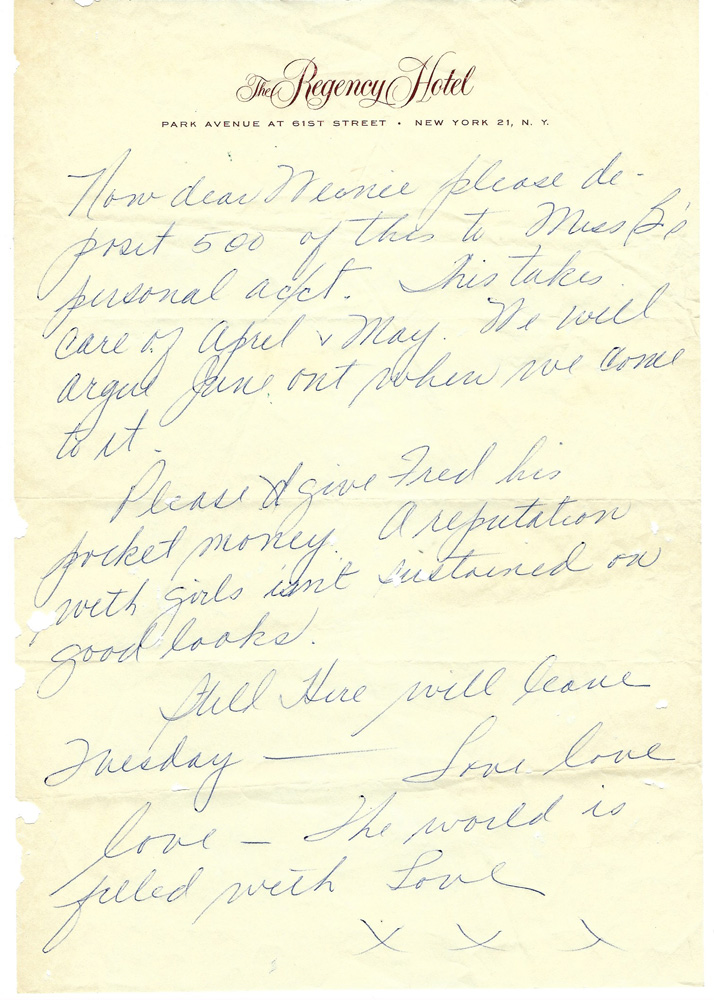 The Regency Hotel
PARK AVENUE AT 61ST STREET • NEW YORK 21, N. Y.
Now dear Weenie please de-
posit 500 of this to Miss B's
personal acct. This takes
care of April & May. We will
argue June out when we come
to it.
Please give Fred his
pocket money. A reputation
with girls isnt sustained on
good looks.
Still Here will leave
Tuesday — Love love
love — The world is
filled with Love
x x x